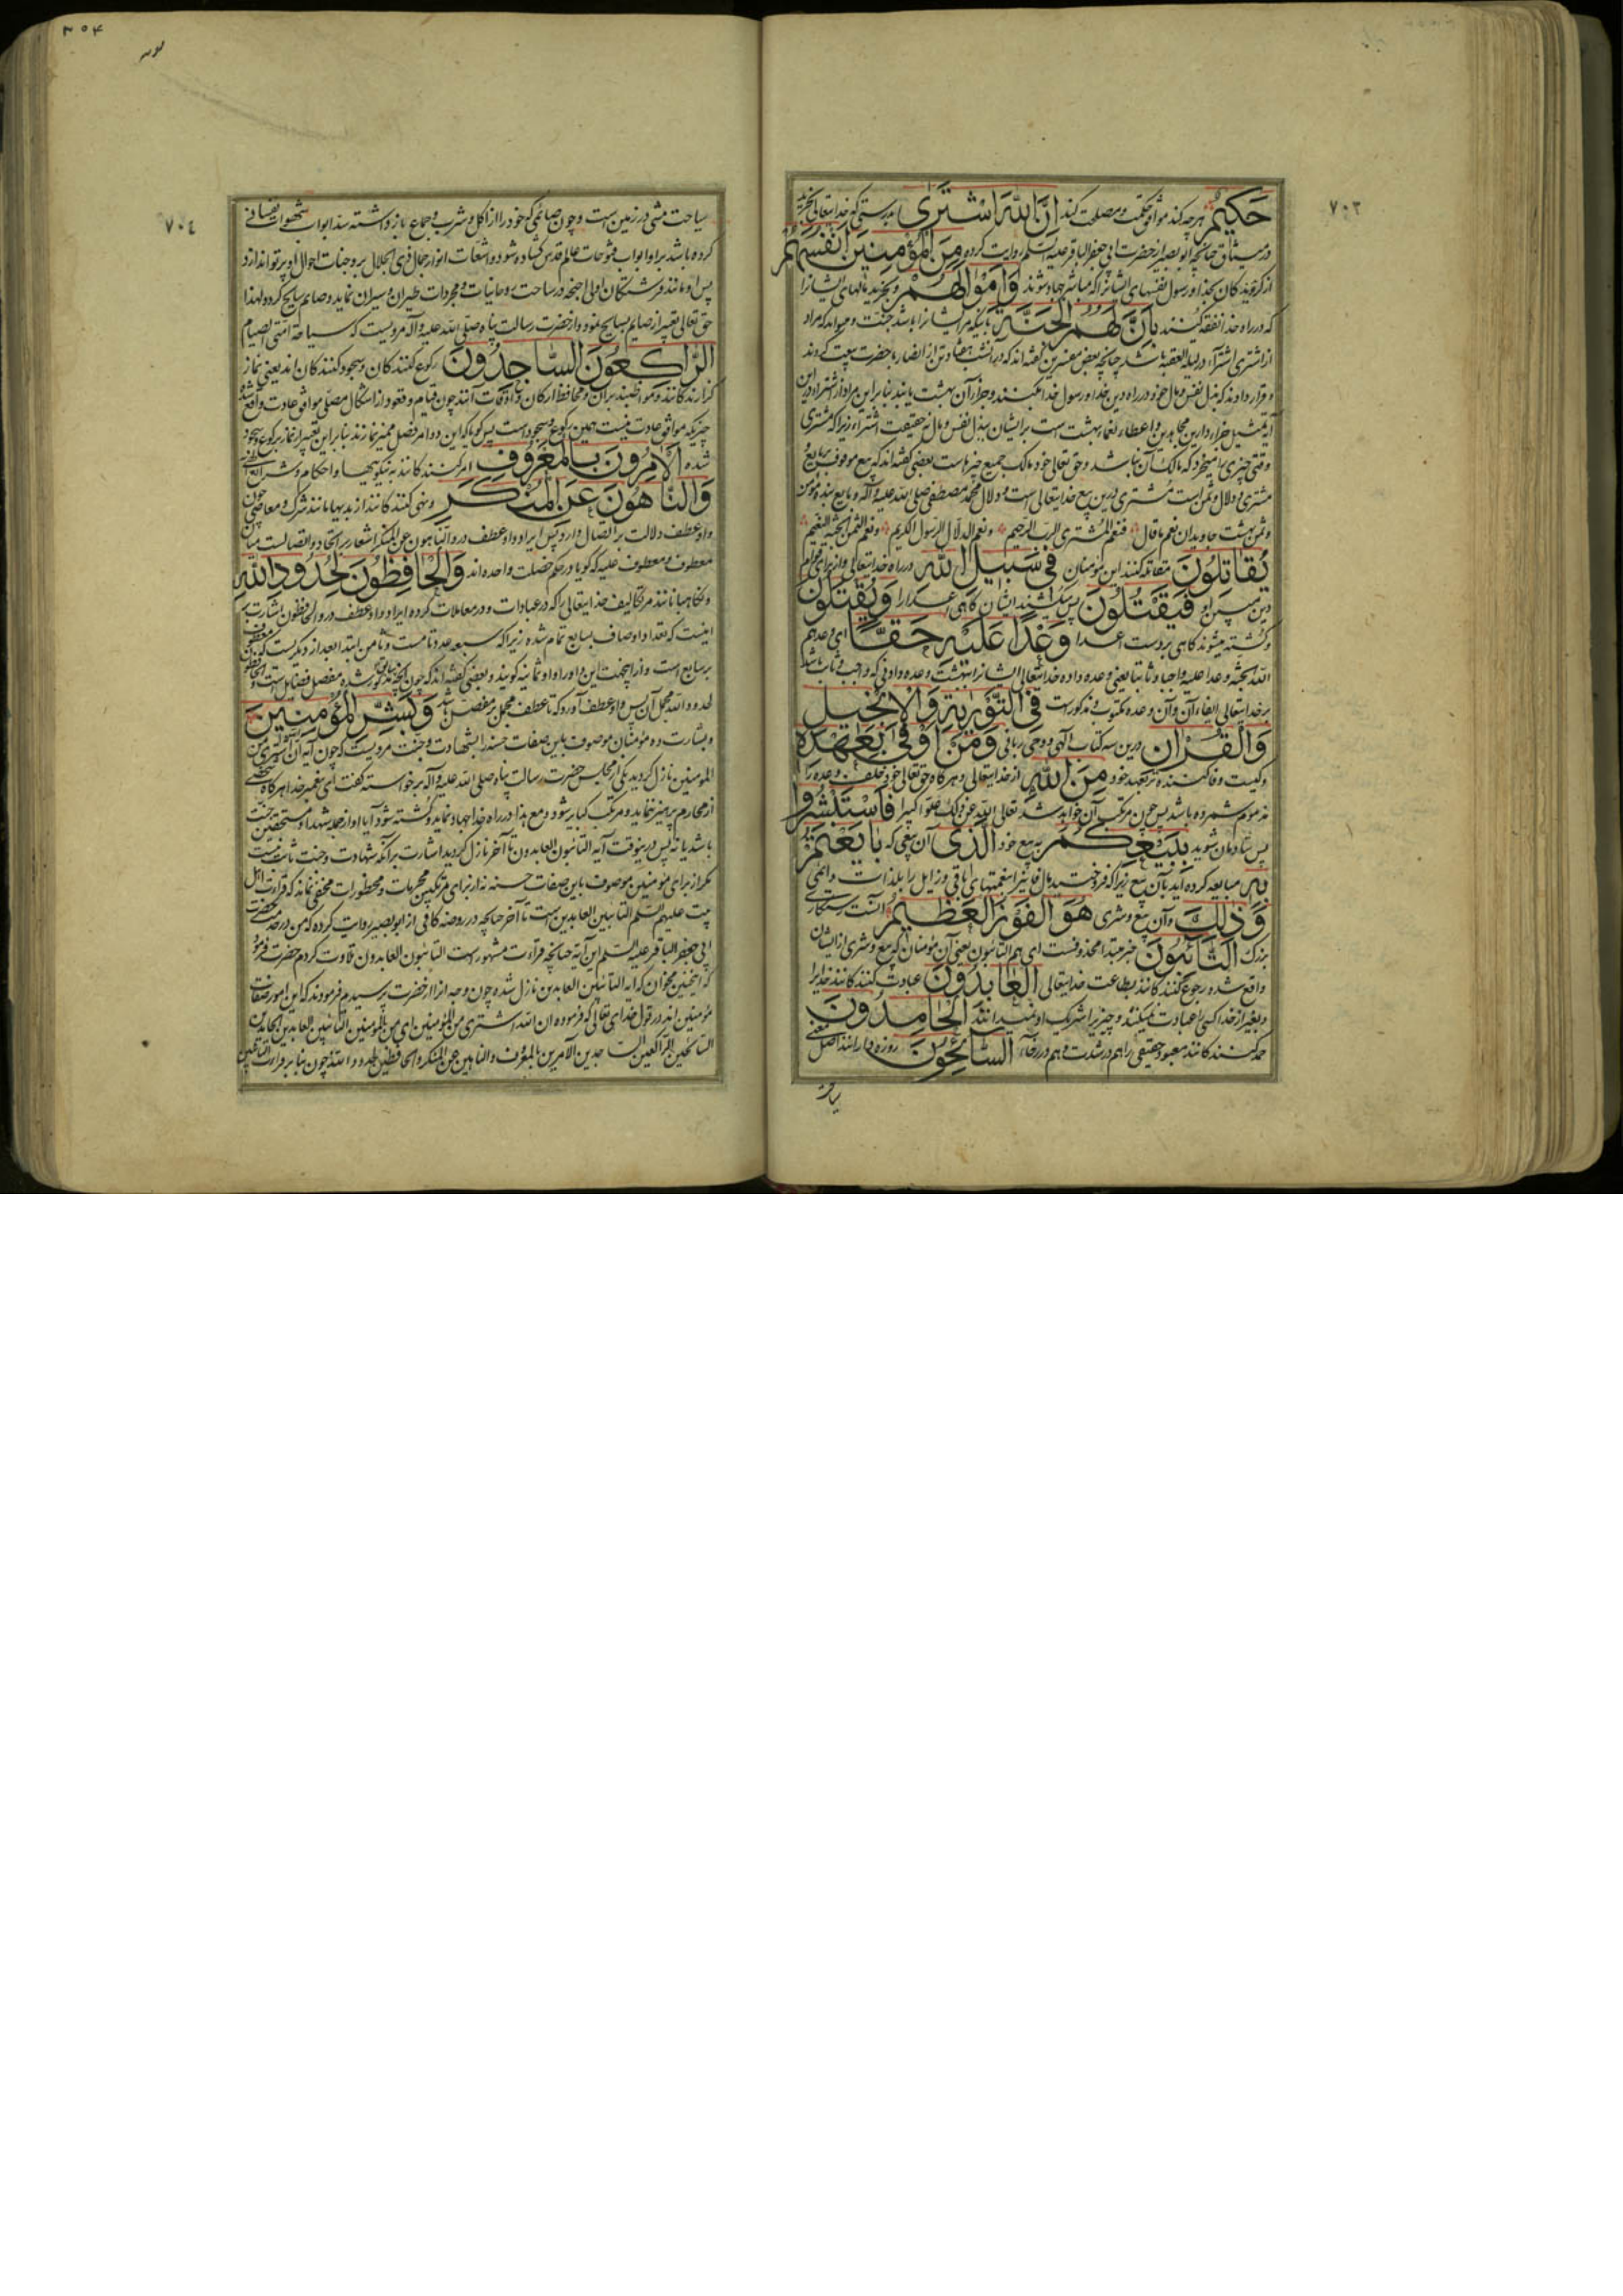 ٧٠٣
حَكِيمٌ هرچه کند موافق حکمت و مصلحت کند إِنَّ اللَّهَ اشْتَرَىٰ بدرستی که خدایتعالی بخرید
در میثاق چنانچه ابو بصیر از حضرت ابی جعفر الباقر علیه السلم روایت کرده مِنَ الْمُؤْمِنِينَ أَنْفُسَهُمْ
از گروندگان بخدا و رسول نفسهای ایشانرا که مباشر جهاد شوند وَأَمْوَالَهُمْ و بخرید مالهای ایشانرا
که در راه خدا نفقه کنند بِأَنَّ لَهُمُ الْجَنَّةَ باینکه مر ایشانرا باشد جنت و میتواند که مراد
از اشتری اشترآء در لیلة العقبه باشد چنانچه بعض مفسرین گفته‌اند که در آنشب هفتاد تن از انصار با حضرت بیعت کردند
و قرار دادند که بذل نفس و مال خود در راه دین خدا و رسول خدا بکنند و جزاء آن بهشت یابند بنابر این مراد از اشتراء در این
آیه تمثیل جزاء دادن مجاهدین و اعطاء نعماء بهشت است بر ایشان ببذل نفس و مال نه حقیقت اشتراء زیرا که مشتری
وقتی چیزی را میخرد که مالک آن نباشد و حق تعالی خود مالک جمیع چیزهاست بعضی گفته‌اند که بیع موقوف بر بایع
مشتری و دلال و ثمن است مشتری درین بیع خدایتعالی است و دلال محمد مصطفی صلی الله علیه و آله و بایع بنده مؤمن
و ثمن بهشت جاویدان نعم ما قال فنعم المشتری الرب الرحیم و نعم الدلال الرسول الکریم و نعم الثمن الجنة النعیم
يُقَاتِلُونَ مقاتله کنند این مؤمنان فِي سَبِيلِ اللَّهِ در راه خدایتعالی و از برای قوام
دین مبین او فَيَقْتُلُونَ پس بکشند ایشان گاهی اعدا را وَيُقْتَلُونَ
و کشته میشوند گاهی بر دست اعدا وَعْدًا عَلَيْهِ حَقًّا ای وعدهم
الله الجنة وعدا علیه واجبا و ثابتا یعنی وعده داده خدایتعالی ایشانرا بهشت وعده دادنی که واجب و ثابت باشد
بر خدایتعالی ایفاء آن و آن وعده مکتوب و مذکورست فِي التَّوْرَاةِ وَالْإِنْجِيلِ
وَالْقُرْآنِ درین سه کتاب الهی و وحی ربانی وَمَنْ أَوْفَىٰ بِعَهْدِهِ
و کیست وفا کننده‌تر بعهد خود مِنَ اللَّهِ از خدایتعالی و هرگاه حق تعالی خود خلف وعده را
مذموم شمرده باشد پس چون مرتکب آن خواهد شد تعالی الله عن ذلک علوا کبیرا فَاسْتَبْشِرُوا
پس شادمان شوید بِبَيْعِكُمُ به بیع خود الَّذِي آن بیعی که بَايَعْتُمْ
بِهِ مبایعه کرده‌اید بآن بیع زیرا که فروختید مال فانیرا بنعمتهای باقی و زایل را بلذات دائمی
وَذَٰلِكَ و آن بیع و شری هُوَ الْفَوْزُ الْعَظِيمُ آنست رستگاری
بزرگ التَّائِبُونَ خبر مبتداء محذوفست ای هم التائبون یعنی آن مؤمنان که بیع و شری از ایشان
واقع شده رجوع کنندگانند بطاعت خدایتعالی الْعَابِدُونَ عبادت کنندگانند خدایرا
و بغیر از خدا کسی را عبادت نمیکنند و چیزیرا شریک او نمیدانند الْحَامِدُونَ
حمد کنندگانند معبود حقیقی را هم در شدت و هم در رخاء السَّائِحُونَ روزه دارانند اصل معنی
سیاحت
٣٠۴
٧٠٤
سیاحت مشی در زمین است و چون صائمی که خود را از اکل و شرب و جماع بازداشته سد ابواب شهوات نفسانی
کرده باشد بر او ابواب فتوحات عالم قدس گشاده شود و اشعات انوار جمال ذی الجلال بر وجنات احوال او پرتو اندازد
پس او مانند فرشتگان اولی اجنحه در ساحت روحانیات و مجردات طیران و سیران نماید و صایم سایح گردد لهذا
حق تعالی تعبیر از صایم بسایح نمود و از حضرت رسالت پناه صلی الله علیه و آله مرویست که سیاحة امتی الصیام
الرَّاكِعُونَ السَّاجِدُونَ رکوع کنندگان و سجود کنندگان اند یعنی نماز
گزارندگانند و مواظبند بر آن و محافظ ارکان و اوقات آنند چون قیام و قعود از اشکال مصلی موافق عادت واقع شده
چیزیکه موافق عادت نیست همین رکوع و سجود است پس گویا که این دو امر فصل ممیز نمازند بنابر این تعبیر از نماز برکوع و سجود
شده الْآمِرُونَ بِالْمَعْرُوفِ امر کنندگانند به نیکوییها و احکام شرایع الهی
وَالنَّاهُونَ عَنِ الْمُنْكَرِ و نهی کنندگانند از بدیها مانند شرک و معاصی چون
واو عطف دلالت بر اتصال دارد پس ایراد واو عطف در و الناهون عن المنکر اشعار بر اتحاد و اتصالست میان
معطوف و معطوف علیه که گویا در حکم خصلت واحده‌اند وَالْحَافِظُونَ لِحُدُودِ اللَّهِ
و نگاهبانانند مر تکالیف خدایتعالی را که در عبادات و در معاملات کرده ایراد واو عطف در و الحافظون اشارت بر
اینست که تعداد اوصاف بسابع تمام شده زیرا که سبعه عدد تامست و ثامن ابتداء بعد از دیگریست که معطوف
بر سابع است و از اینجهت این واو را واو ثمانیه گویند و بعضی گفته‌اند که چون آنچه سابق مذکور شده مفصل فضایل است و الحافظون
لحدود الله مجمل آن پس واو عطف آورد که تا عطف مجمل بر مفصل باشد وَبَشِّرِ الْمُؤْمِنِينَ
و بشارت ده مؤمنان موصوف باین صفات حسنه را بشهادت و جنت مرویست که چون آیه ان الله اشتری من
المؤمنین نازل گردید یکی از مجلس حضرت رسالت پناه صلی الله علیه و آله برخواسته گفت ای پیغمبر خدا هرگاه شخصی
از محارم پرهیز ننماید و مرتکب کبایر شود و مع هذا در راه خدا جهاد نماید و کشته شود آیا او از جمله شهدا و مستحقین جنت
باشد یا نه پس در ینوقت آیه التائبون العابدون تا آخر نازل گردید اشارت بر آنکه شهادت و جنت ثابت نیست
مگر از برای مؤمنین موصوف باین صفات حسنه نه از برای مرتکبین محرمات و محظورات مخفی نماند که قراءت اهل
بیت علیهم السلم التائبین العابدین است تا آخر چنانچه در روضه کافی از ابو بصیر روایت کرده که من در خدمت حضرت
ابی جعفر الباقر علیه السلم این آیه چنانچه قراءت مشهور است التائبون العابدون تلاوت کردم حضرت فرمود
که اینچنین مخوان که آیه التائبین العابدین نازل شده چون وجه از آنحضرت پرسیدم فرمودند که این امور صفات
مؤمنین اند در قول خدای تعالی که فرموده ان الله اشتری من المؤمنین ای من المؤمنین التائبین العابدین الحامدین
السائحین الراکعین الساجدین الآمرین بالمعروف و الناهین عن المنکر و الحافظین لحدود الله چون بنابر قراءت التائبین